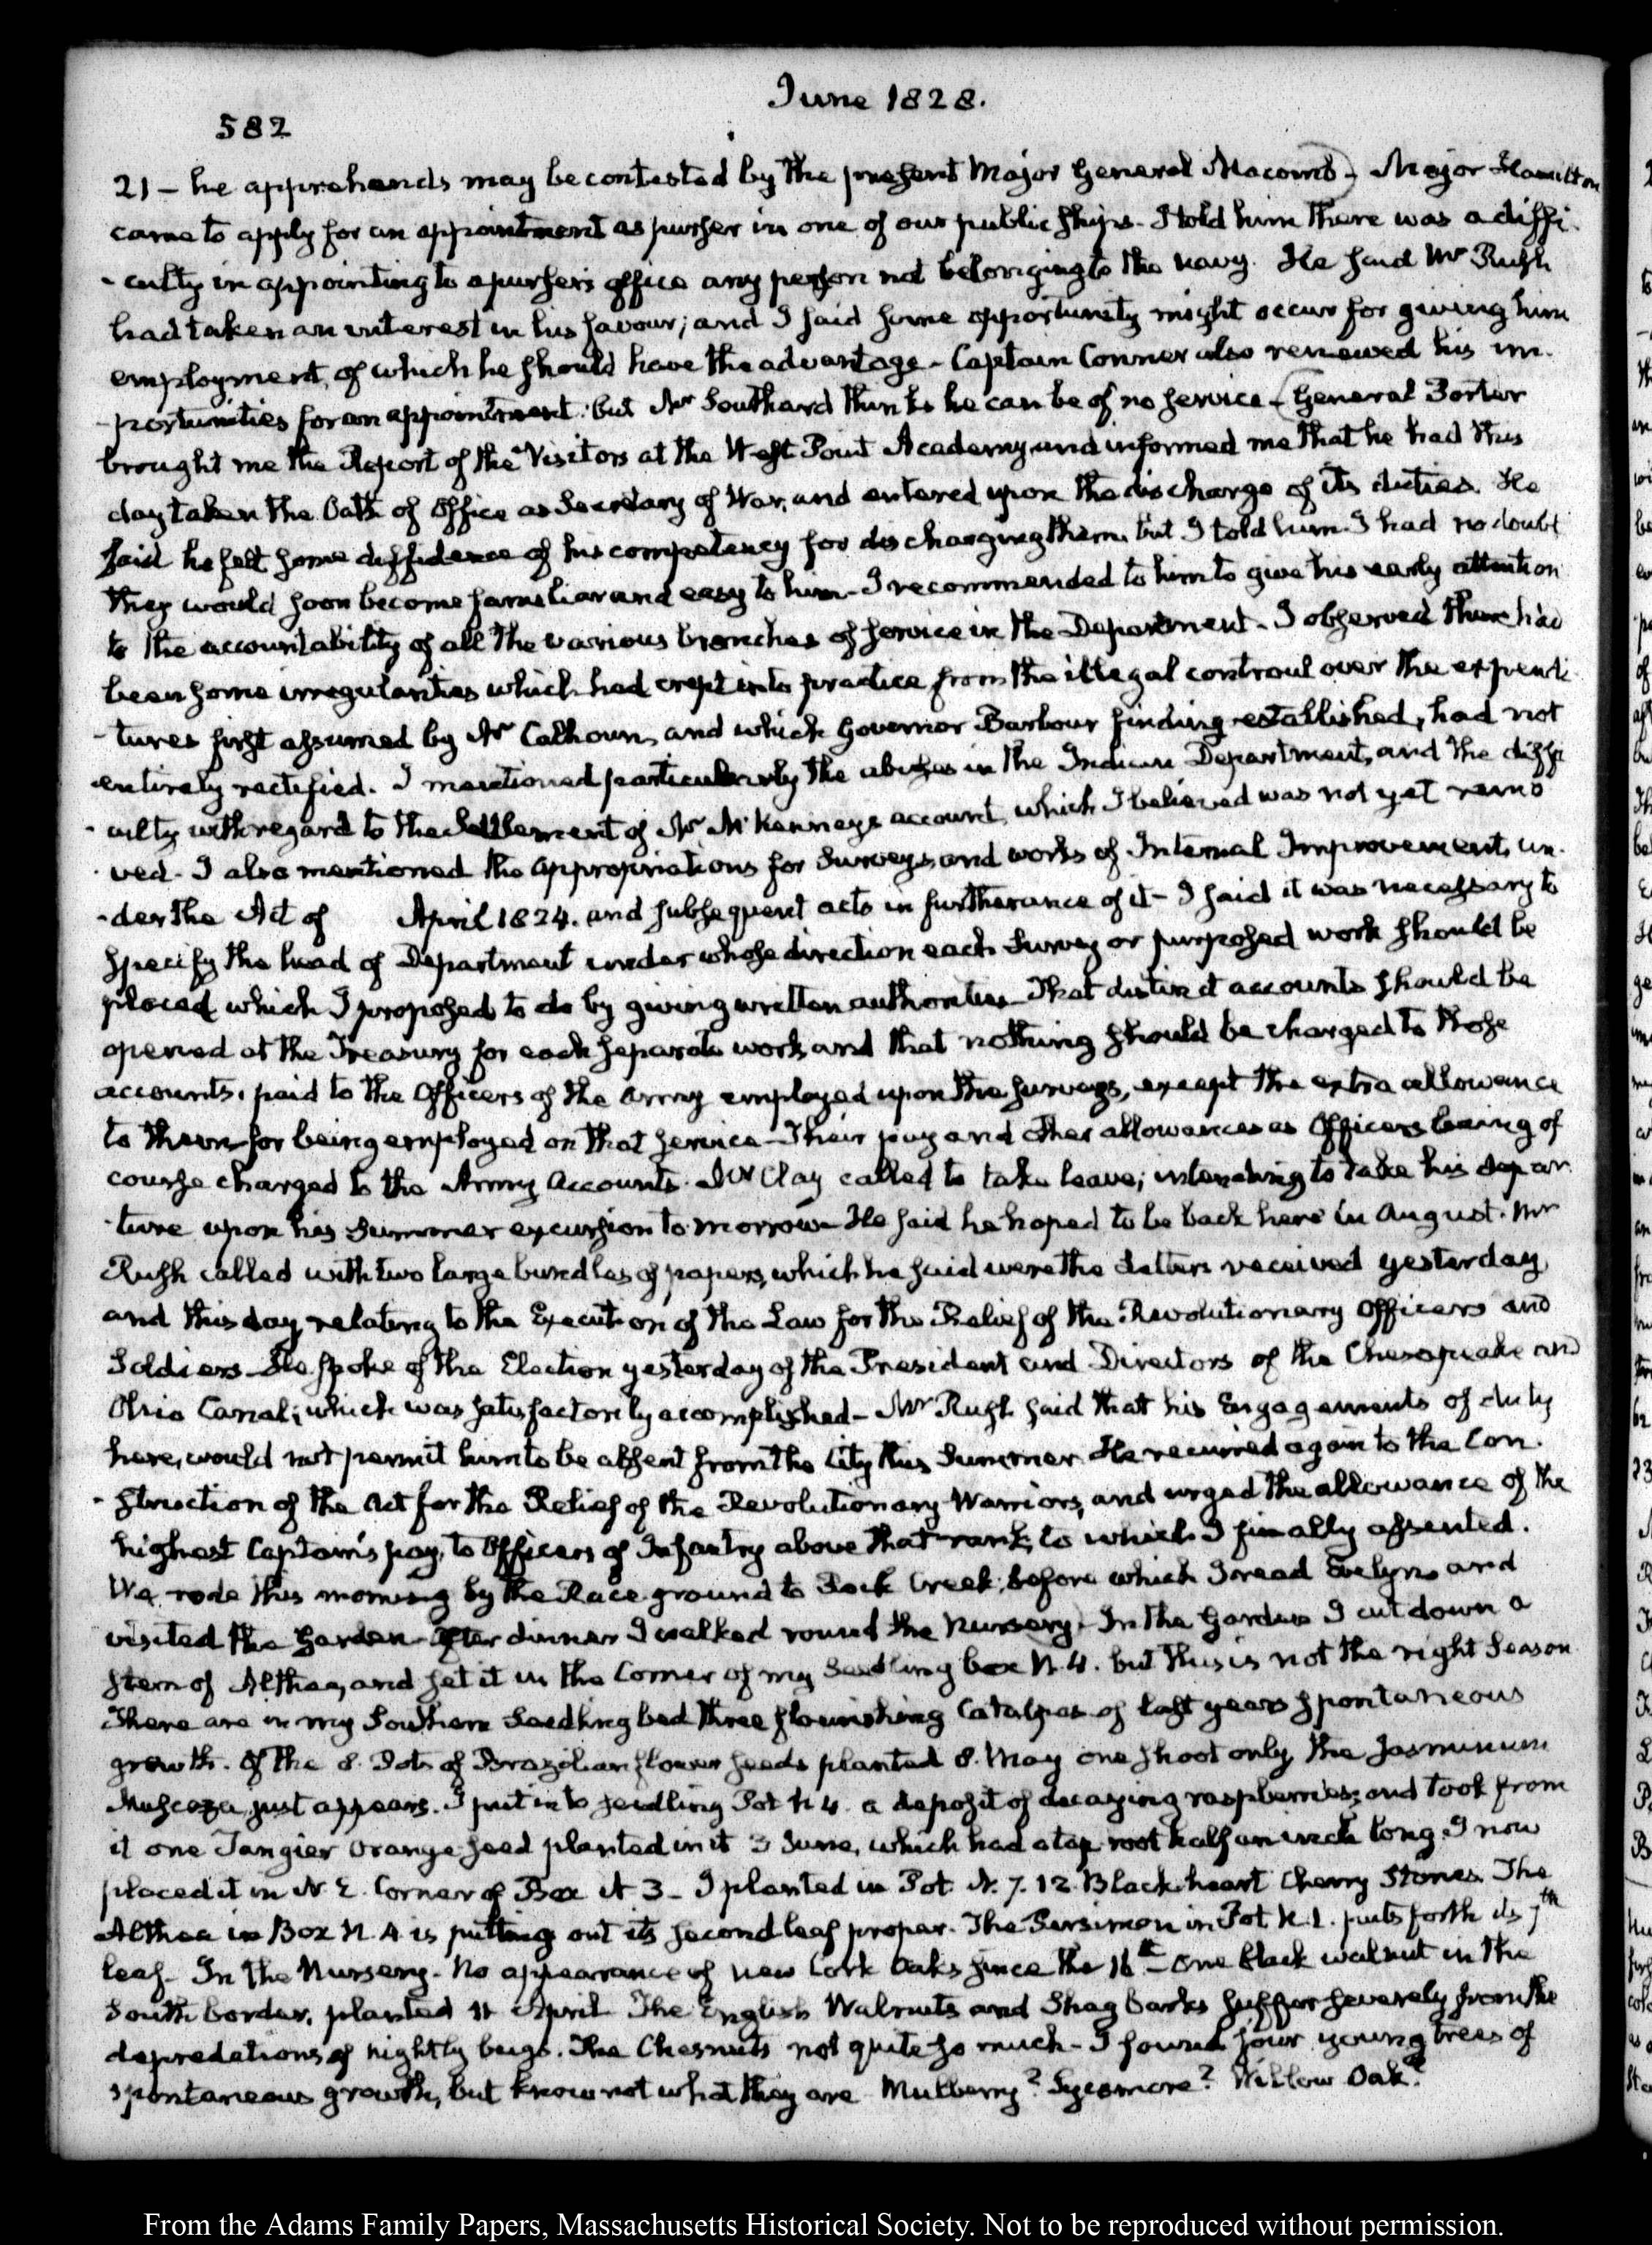 June 1828.
582
21 — he apprehends may be contested by the present Major General Macomb) — Major Hamilton
came to apply for an appointment as purser in one of our public ships — I told him there was a diffi-
-culty in appointing to a purser's office any person not belonging to the navy. He said Mr Rush
had taken an interest in his favour; and I said some opportunity might occur for giving him
employment, of which he should have the advantage — Captain Conner also renewed his im-
-portunities for an appointment; but Mr Southard thinks he can be of no service — (General Porter
brought me the Report of the Visitors at the West Point Academy, and informed me that he had this
day taken the Oath of Office as Secretary of War, and entered upon the discharge of its duties. He
said he felt some diffidence of his competency for discharging them, but I told him I had no doubt
they would soon become familiar and easy to him — I recommended to him to give his early attention
to the accountability of all the various branches of service in the Department — I observed there had
been some irregularities which had crept into practice from the illegal controul over the expendi-
-tures first assumed by Mr Calhoun, and which Governor Barbour finding established, had not
entirely rectified. I mentioned particularly the abuses in the Indian Department, and the diffi
-culty with regard to the Settlement of Mr McKenney's account, which I believed was not yet remo
-ved. I also mentioned the appropriations for Surveys, and works of Internal Improvement, un-
-der the Act of April 1824. and subsequent acts in furtherance of it — I said it was necessary to
specify the head of Department under whose direction each Survey or purposed work should be
placed which I proposed to do by giving written authorities — That distinct accounts should be
opened at the Treasury for each separate work, and that nothing should be charged to those
accounts, paid to the Officers of the Army employed upon the surveys, except the extra allowance
to them for being employed on that service — Their pay and other allowances as Officers being of
course charged to the Army Accounts. Mr Clay called to take leave; intending to take his depar
-ture upon his Summer excursion to morrow — He said he hoped to be back here in August. Mr
Rush called with two large bundles of papers, which he said were the letters received yesterday,
and this day, relating to the Execution of the Law for the Relief of the Revolutionary Officers and
Soldiers — He spoke of the Election yesterday of the President and Directors of the Chesapeake and
Ohio Canal; which was satisfactorily accomplished — Mr Rush said that his Engagements of duty
here, would not permit him to be absent from the City this Summer. He recurred again to the Con-
-struction of the Act for the Relief of the Revolutionary Warriors, and urged the allowance of the
highest Captain's pay, to Officers of Infantry above that rank, to which I finally assented.
We rode this morning by the Race ground to Rock Creek, before which I read Evelyn and
visited the Garden — After dinner I walked round the Nursery) — In the Garden I cut down a
stem of Althea, and set it in the Corner of my Seedling box N. 4. but this is not the right season
There are in my Southern Seedling bed three flourishing Catalpas of last years spontaneous
growth. Of the 8. Pots of Brazilian flower seeds planted 8. May one shoot only, the Jasminum
just appears. I put into seedling Pot N 4. a deposit of decaying raspberries; and took from
it one Tangier Orange seed planted in it 3 June, which had a tap root half an inch long. I now
placed it in N. E. Corner of Box N 3 — I planted in Pot N. 7. 12 Black heart Cherry Stones. The
Althea in Box N. 4 is putting out its second leaf proper. The Persimon in Pot N. 1. puts forth its 7th
leaf — In the Nursery — No appearance of new Cork Oaks since the 16th — One black walnut in the
South border, planted 11 April. The English Walnuts and Shag barks suffer severely from the
depredations of nightly bugs. The Chesnuts not quite so much — I found four young trees of
spontaneous growth, but know not what they are Mulberry? Sycamore? Willow Oak?
From the Adams Family Papers, Massachusetts Historical Society. Not to be reproduced without permission.